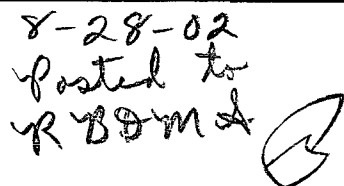 8-28-02
Posted to
RBDMS